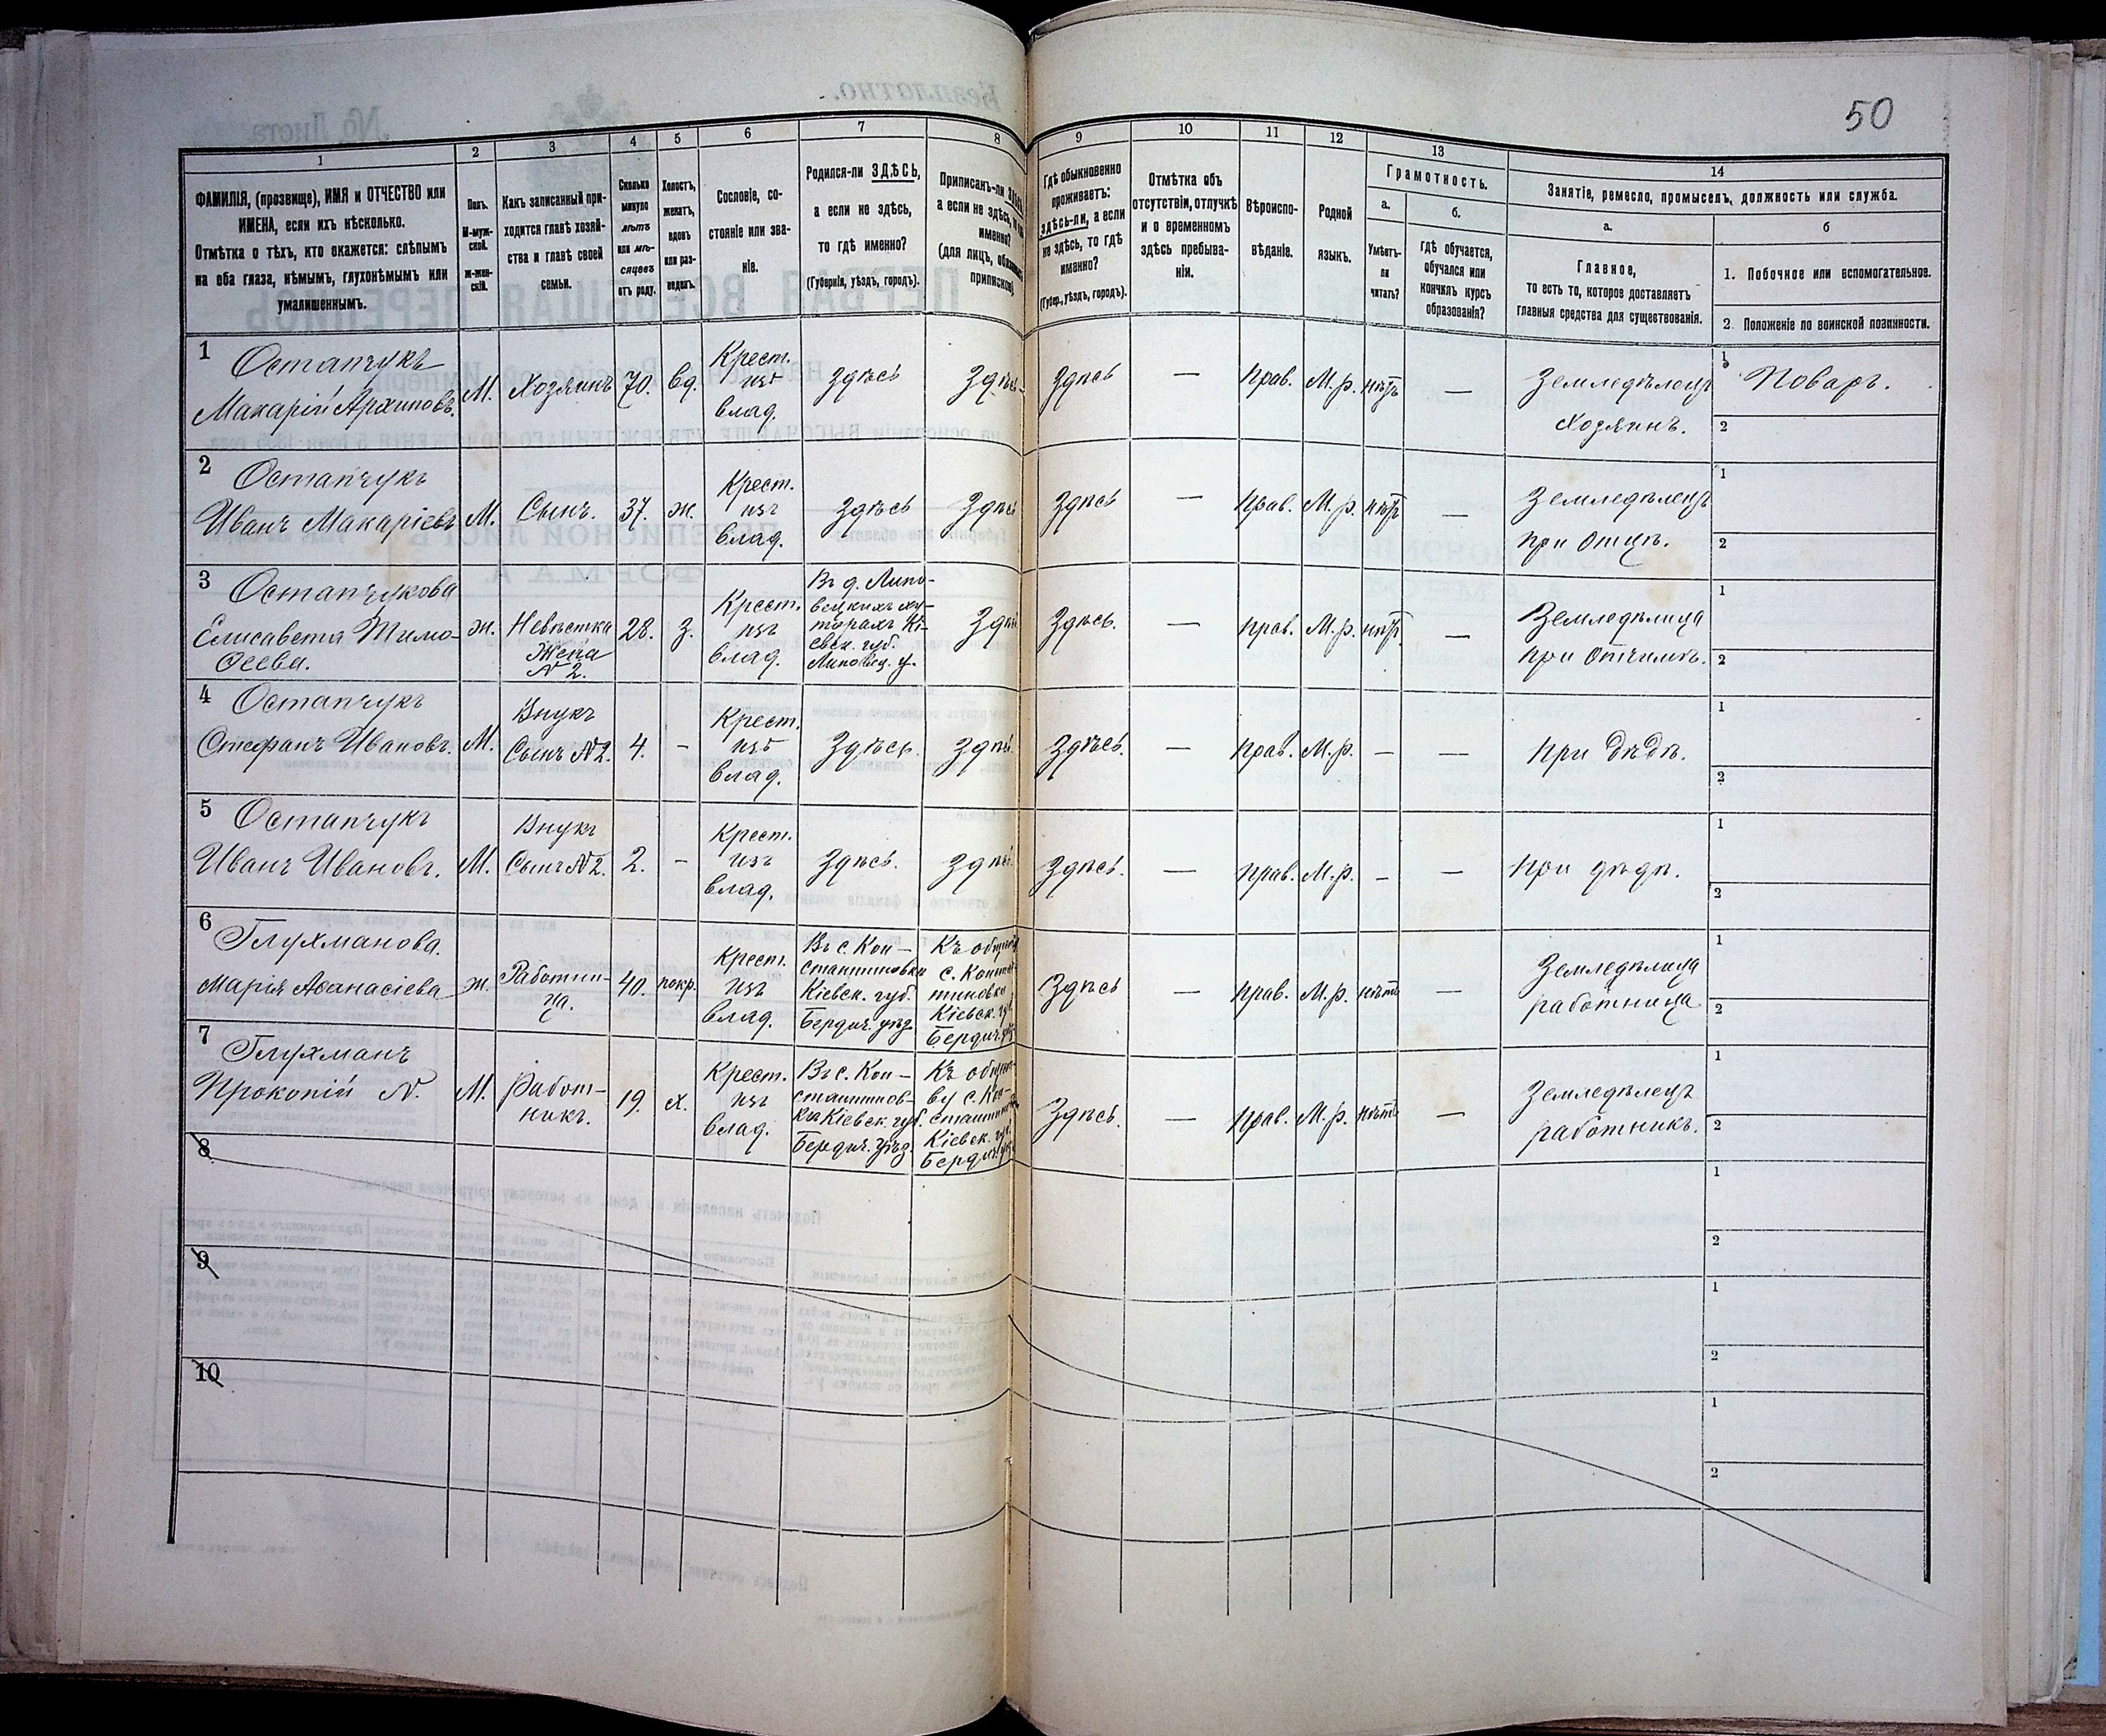 50
1
2
3
4
5
6
7
8
9
10
11
12
13
14
ФАМИЛІЯ, (прозвище), ИМЯ и ОТЧЕСТВО или
ИМЕНА, если ихъ нѣсколько.
Отмѣтка о тѣхъ, кто окажется: слѣпымъ
на оба глаза, нѣмымъ, глухонѣмымъ или
умалишеннымъ.
Полъ.
М-муж-
ской.
Ж-жен-
скій.
Какъ записанный при-
ходится главѣ хозяй-
ства и главѣ своей
семьи.
Сколько
минуло
лѣтъ
или мѣ-
сяцевъ
отъ роду.
Холостъ,
женатъ,
вдовъ
или раз-
веденъ.
Сословіе, со-
стояніе или зва-
ніе.
Родился-ли ЗДѢСЬ,
а если не здѣсь,
то гдѣ именно?
(Губернія, уѣздъ, городъ).
Приписанъ-ли
а если не здѣсь,
именно?
(для лицъ,
припискою)
Гдѣ обыкновенно
проживаетъ:
здѣсь-ли, а если
не здѣсь, то гдѣ
именно?
(Губер., уѣздъ, городъ).
Отмѣтка объ
отсутствіи, отлучкѣ
и о временномъ
здѣсь пребыва-
ніи.
Вѣроиспо-
вѣданіе.
Родной
языкъ.
Грамотность.
а.
б.
Умѣетъ-
ли
читать?
гдѣ обучается,
обучался или
кончилъ курсъ
образованія?
Занятіе, ремесло, промыселъ, должность или служба.
а.
б
Главное,
то есть то, которое доставляетъ
главныя средства для существованія.
1. Побочное или вспомогательное.
2. Положеніе по воинской повинности.
1
Остапчукъ
Макарій Архиповъ.
М.
Хозяинъ
70.
вд.
Крест.
изъ
влад.
Здѣсь
Здѣсь
Здѣсь
—
Прав.
М. р.
нѣтъ
—
Земледѣлецъ
хозяинъ.
1
Поваръ.
2
2
Остапчукъ
Иванъ Макаріевъ
М.
Сынъ.
37.
ж.
Крест.
изъ
влад.
Здѣсь
Здѣсь
Здѣсь
—
Прав.
М. р.
нѣтъ
—
Земледѣлецъ
при отцѣ.
1
2
3
Остапчукова
Елисавета Тимо-
ѳеева.
ж.
Невѣстка
Жена
№ 2.
28.
з.
Крест.
изъ
влад.
Въ д. Липо-
вецкихъ ху-
торахъ Кі-
евск. губ.
Липовец. у.
Здѣсь
Здѣсь.
—
Прав.
М. р.
нѣтъ
—
Земледѣлица
при
1
2
4
Остапчукъ
Стефанъ Ивановъ.
М.
Внукъ
Сынъ № 2.
4.
-
Крест.
изъ
влад.
Здѣсь.
Здѣсь
Здѣсь.
—
Прав.
М. р.
-
—
При дѣдѣ.
1
2
5
Остапчукъ
Иванъ Ивановъ.
М.
Внукъ
Сынъ № 2.
2.
-
Крест.
изъ
влад.
Здѣсь.
Здѣсь
Здѣсь.
—
Прав.
М. р.
-
—
При дѣдѣ.
1
2
6
Глухманова.
Марія Аѳанасіева
ж.
Работни-
ца.
40.
покр.
Крест.
изъ
влад.
Въ с. Кон-
стантиновки
Кіевск. губ.
Бердич. уѣзд.
Къ
с.
Кіевск.
Бердич.
Здѣсь
—
Прав.
М. р.
нѣтъ
—
Земледѣлица
работница
1
2
7
Глухманъ
Прокопій N.
М.
Работ-
никъ.
19.
х.
Крест.
изъ
влад.
Въ с. Кон-
стантинов-
ки Кіевск. губ.
Бердич. уѣзд.
Къ
ву с. Кон-
Кіевск.
Бердич.
Здѣсь.
—
Прав.
М. р.
нѣтъ
—
Земледѣлецъ
работникъ.
1
2
8
1
2
9
1
2
10
1
2